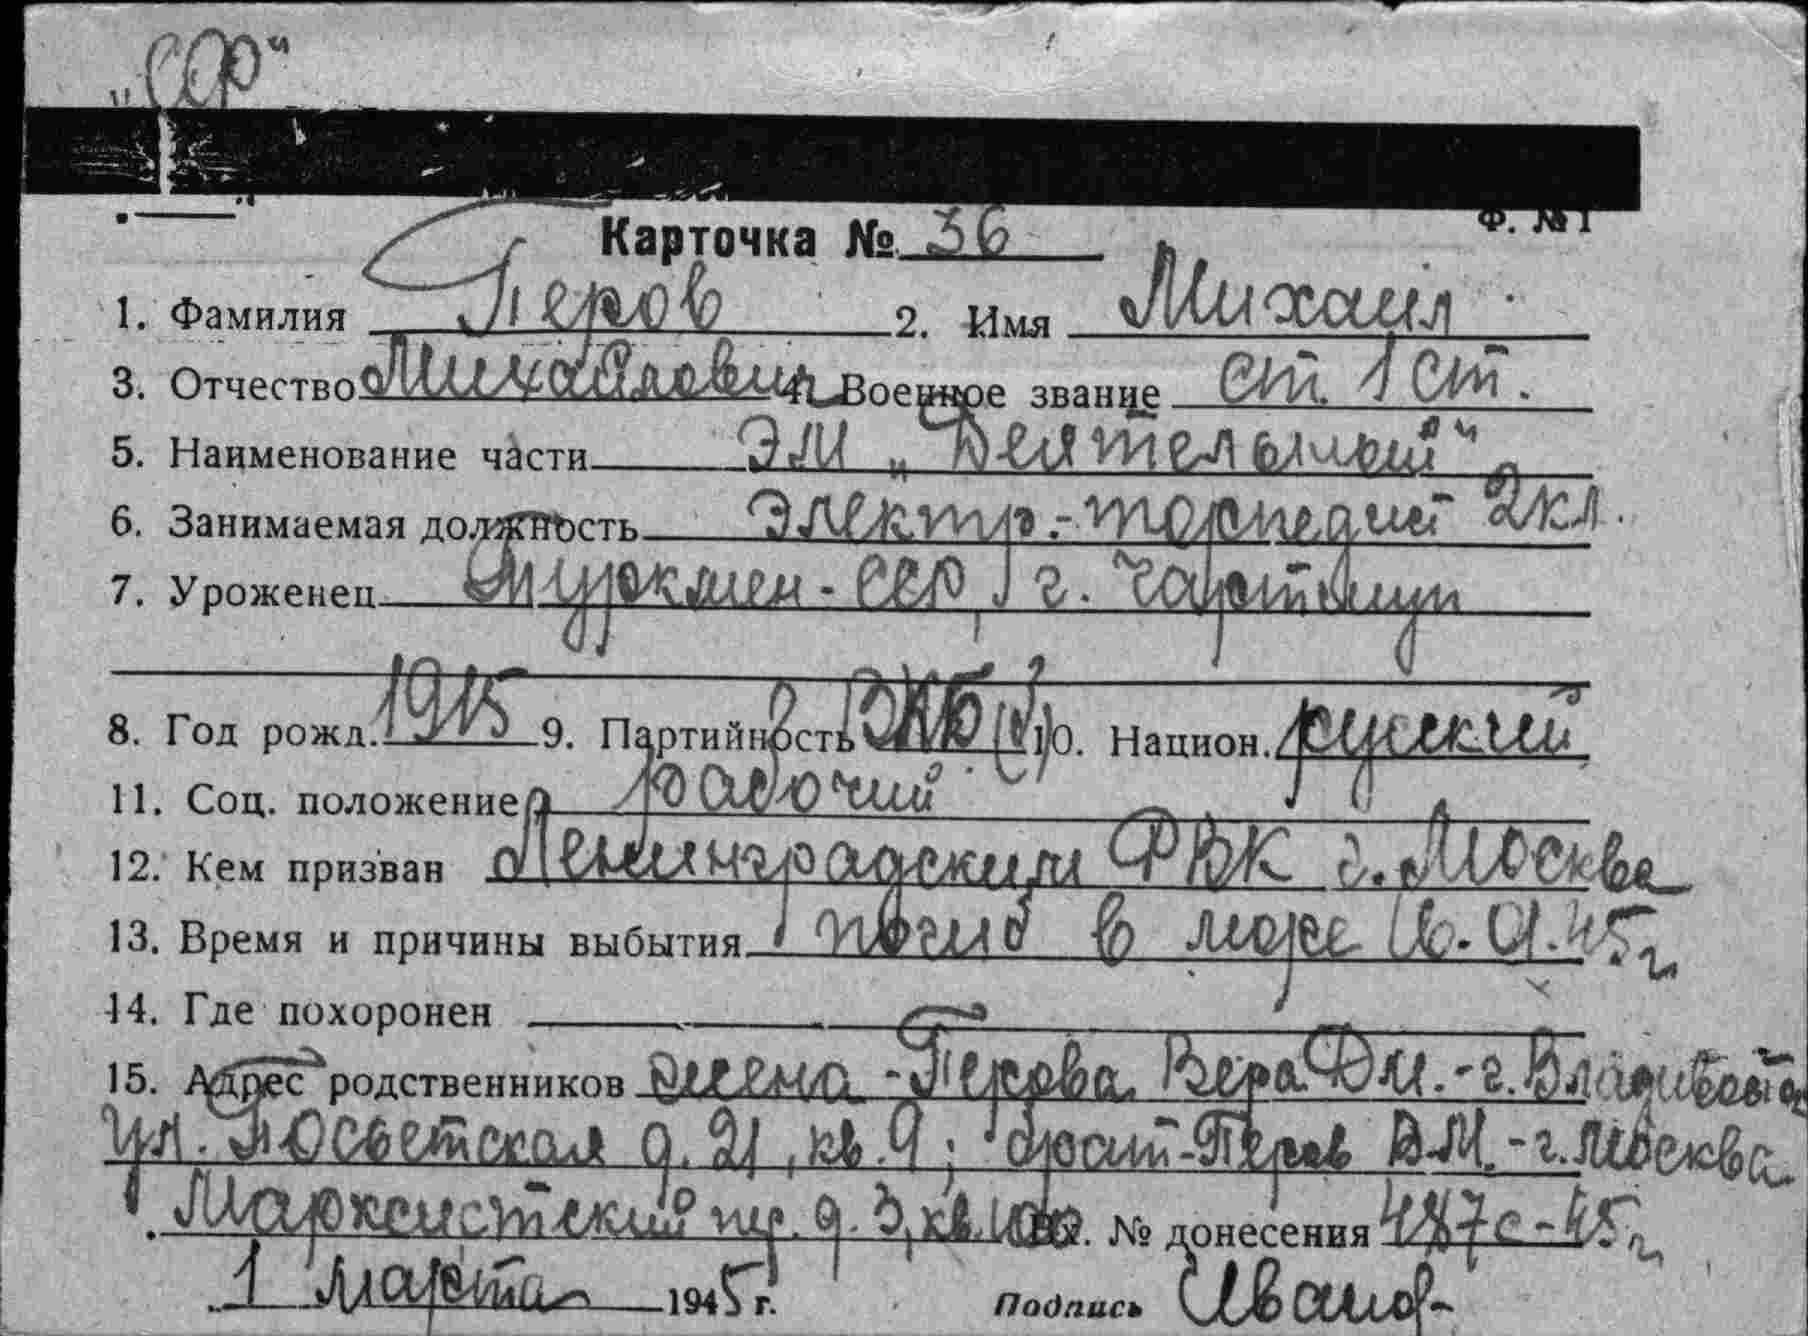 „СФ"
Ф. №1
Карточка № 36
1. Фамилия Перов 2. Имя Михаил
3. Отчество Михайлович 4. Военное звание ст. 1 ст.
5. Наименование части ЭМ „Деятельный"
6. Занимаемая должность Электр.-торпедист 2 кл.
7. Уроженец Туркмен-ССР, г.
8. Год рожд. 1915 9. Партийность ВКП(б) 10. Национ. русский
11. Соц. положение рабочий
12. Кем призван Ленинградским РВК г. Москва
13. Время и причины выбытия погиб в море 16.01.45 г.
14. Где похоронен
15. Адрес родственников жена - Перова Вера Дм. - г. Владивосток
ул. Посьетская д. 21, кв. 9; брат - Перов В.М. - г. Москва
Марксистский пер. д. 3, кв. 100 Вх. № донесения 487с-45 г.
1 марта 1945 г. Подпись Иванов